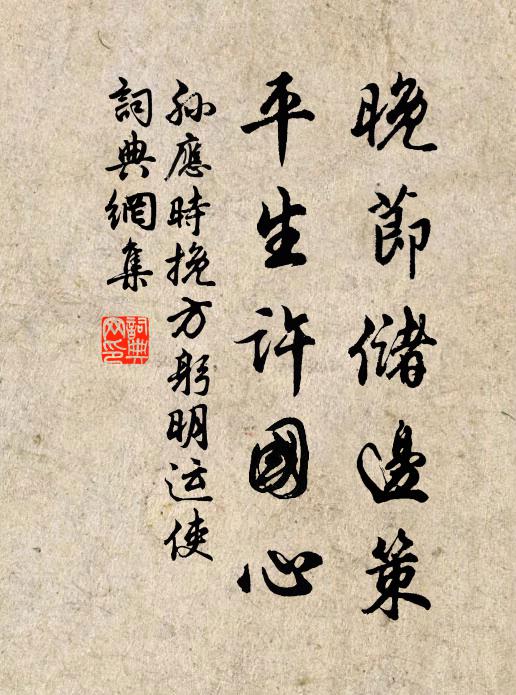 晚節儲邊策
平生許國心
孫應時挽方躬明运使
詞典網集
詞典網印